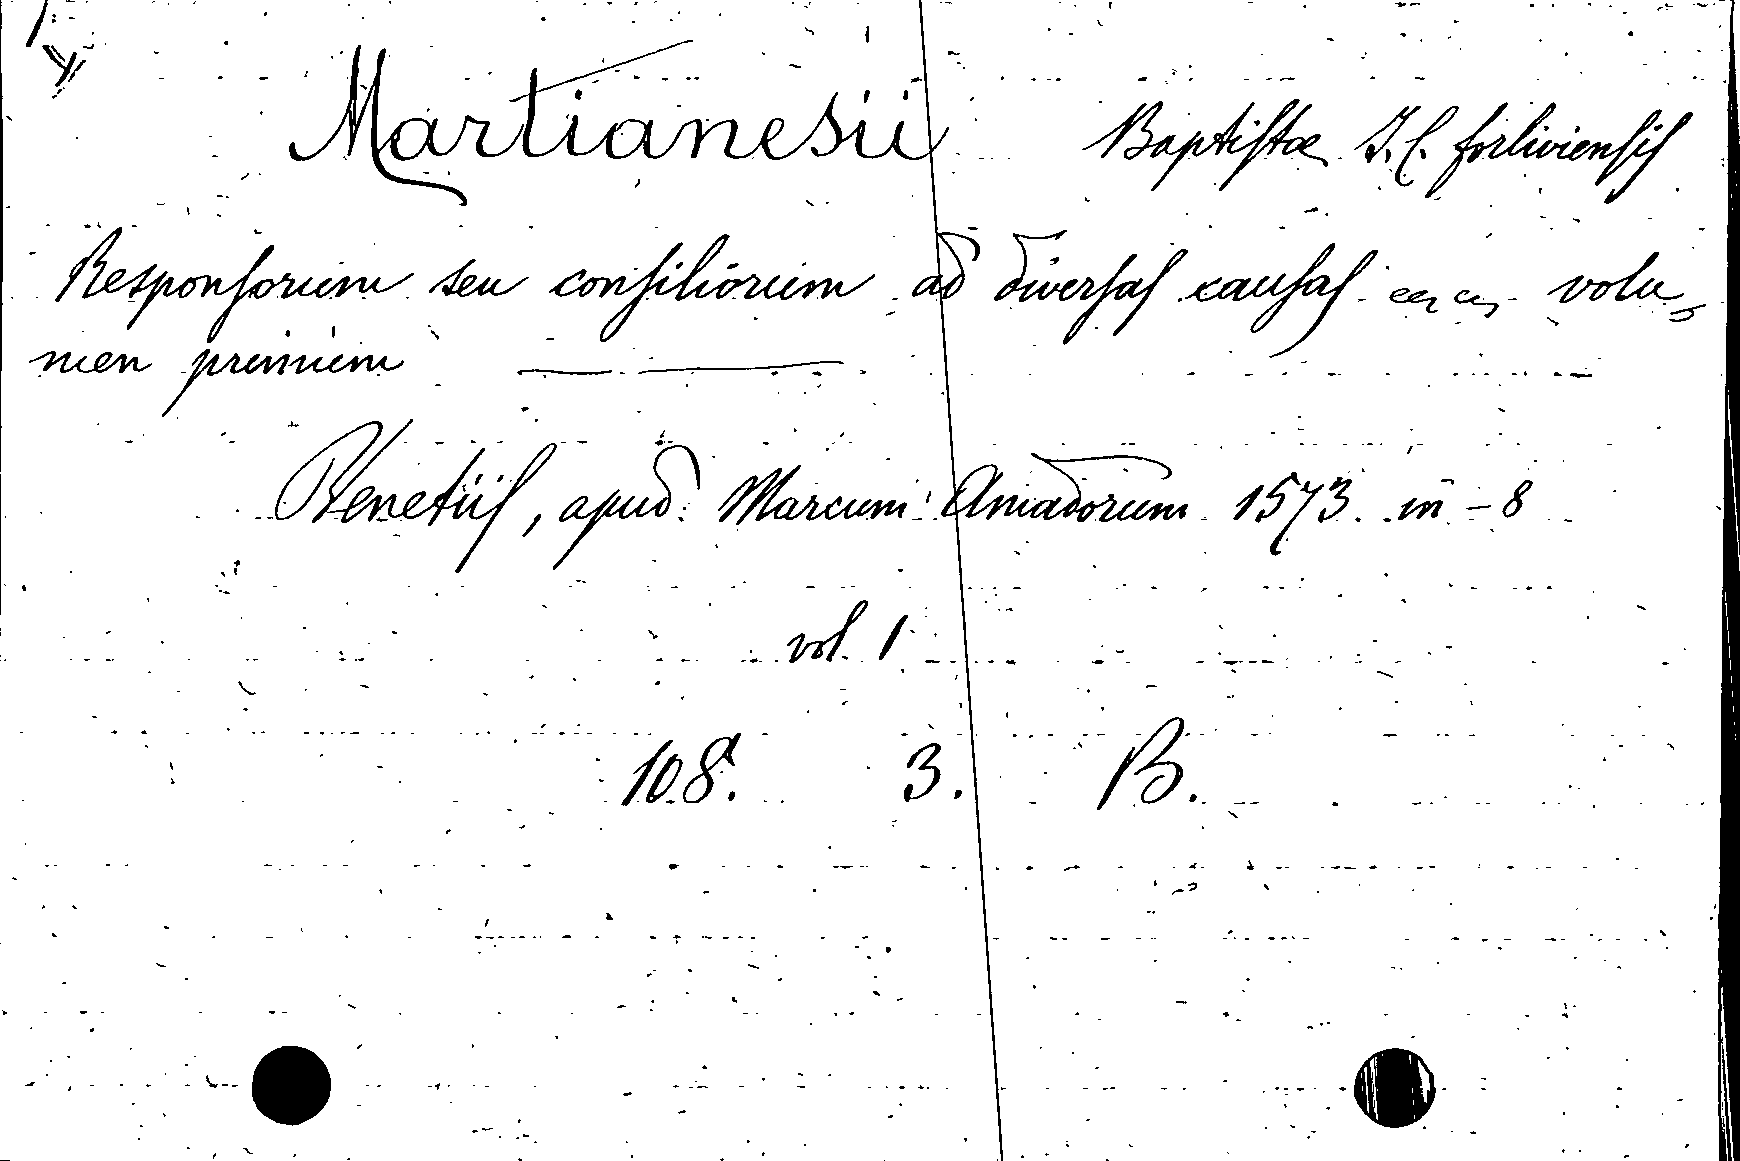 Martianesii Baptistæ I. C. forliviensis
Responsorum seu consiliorum ad diversas causas volu-
men primum
Venetiis, apud Marcum Amadorum 1573. in - 8
vol. 1
108. 3. B.